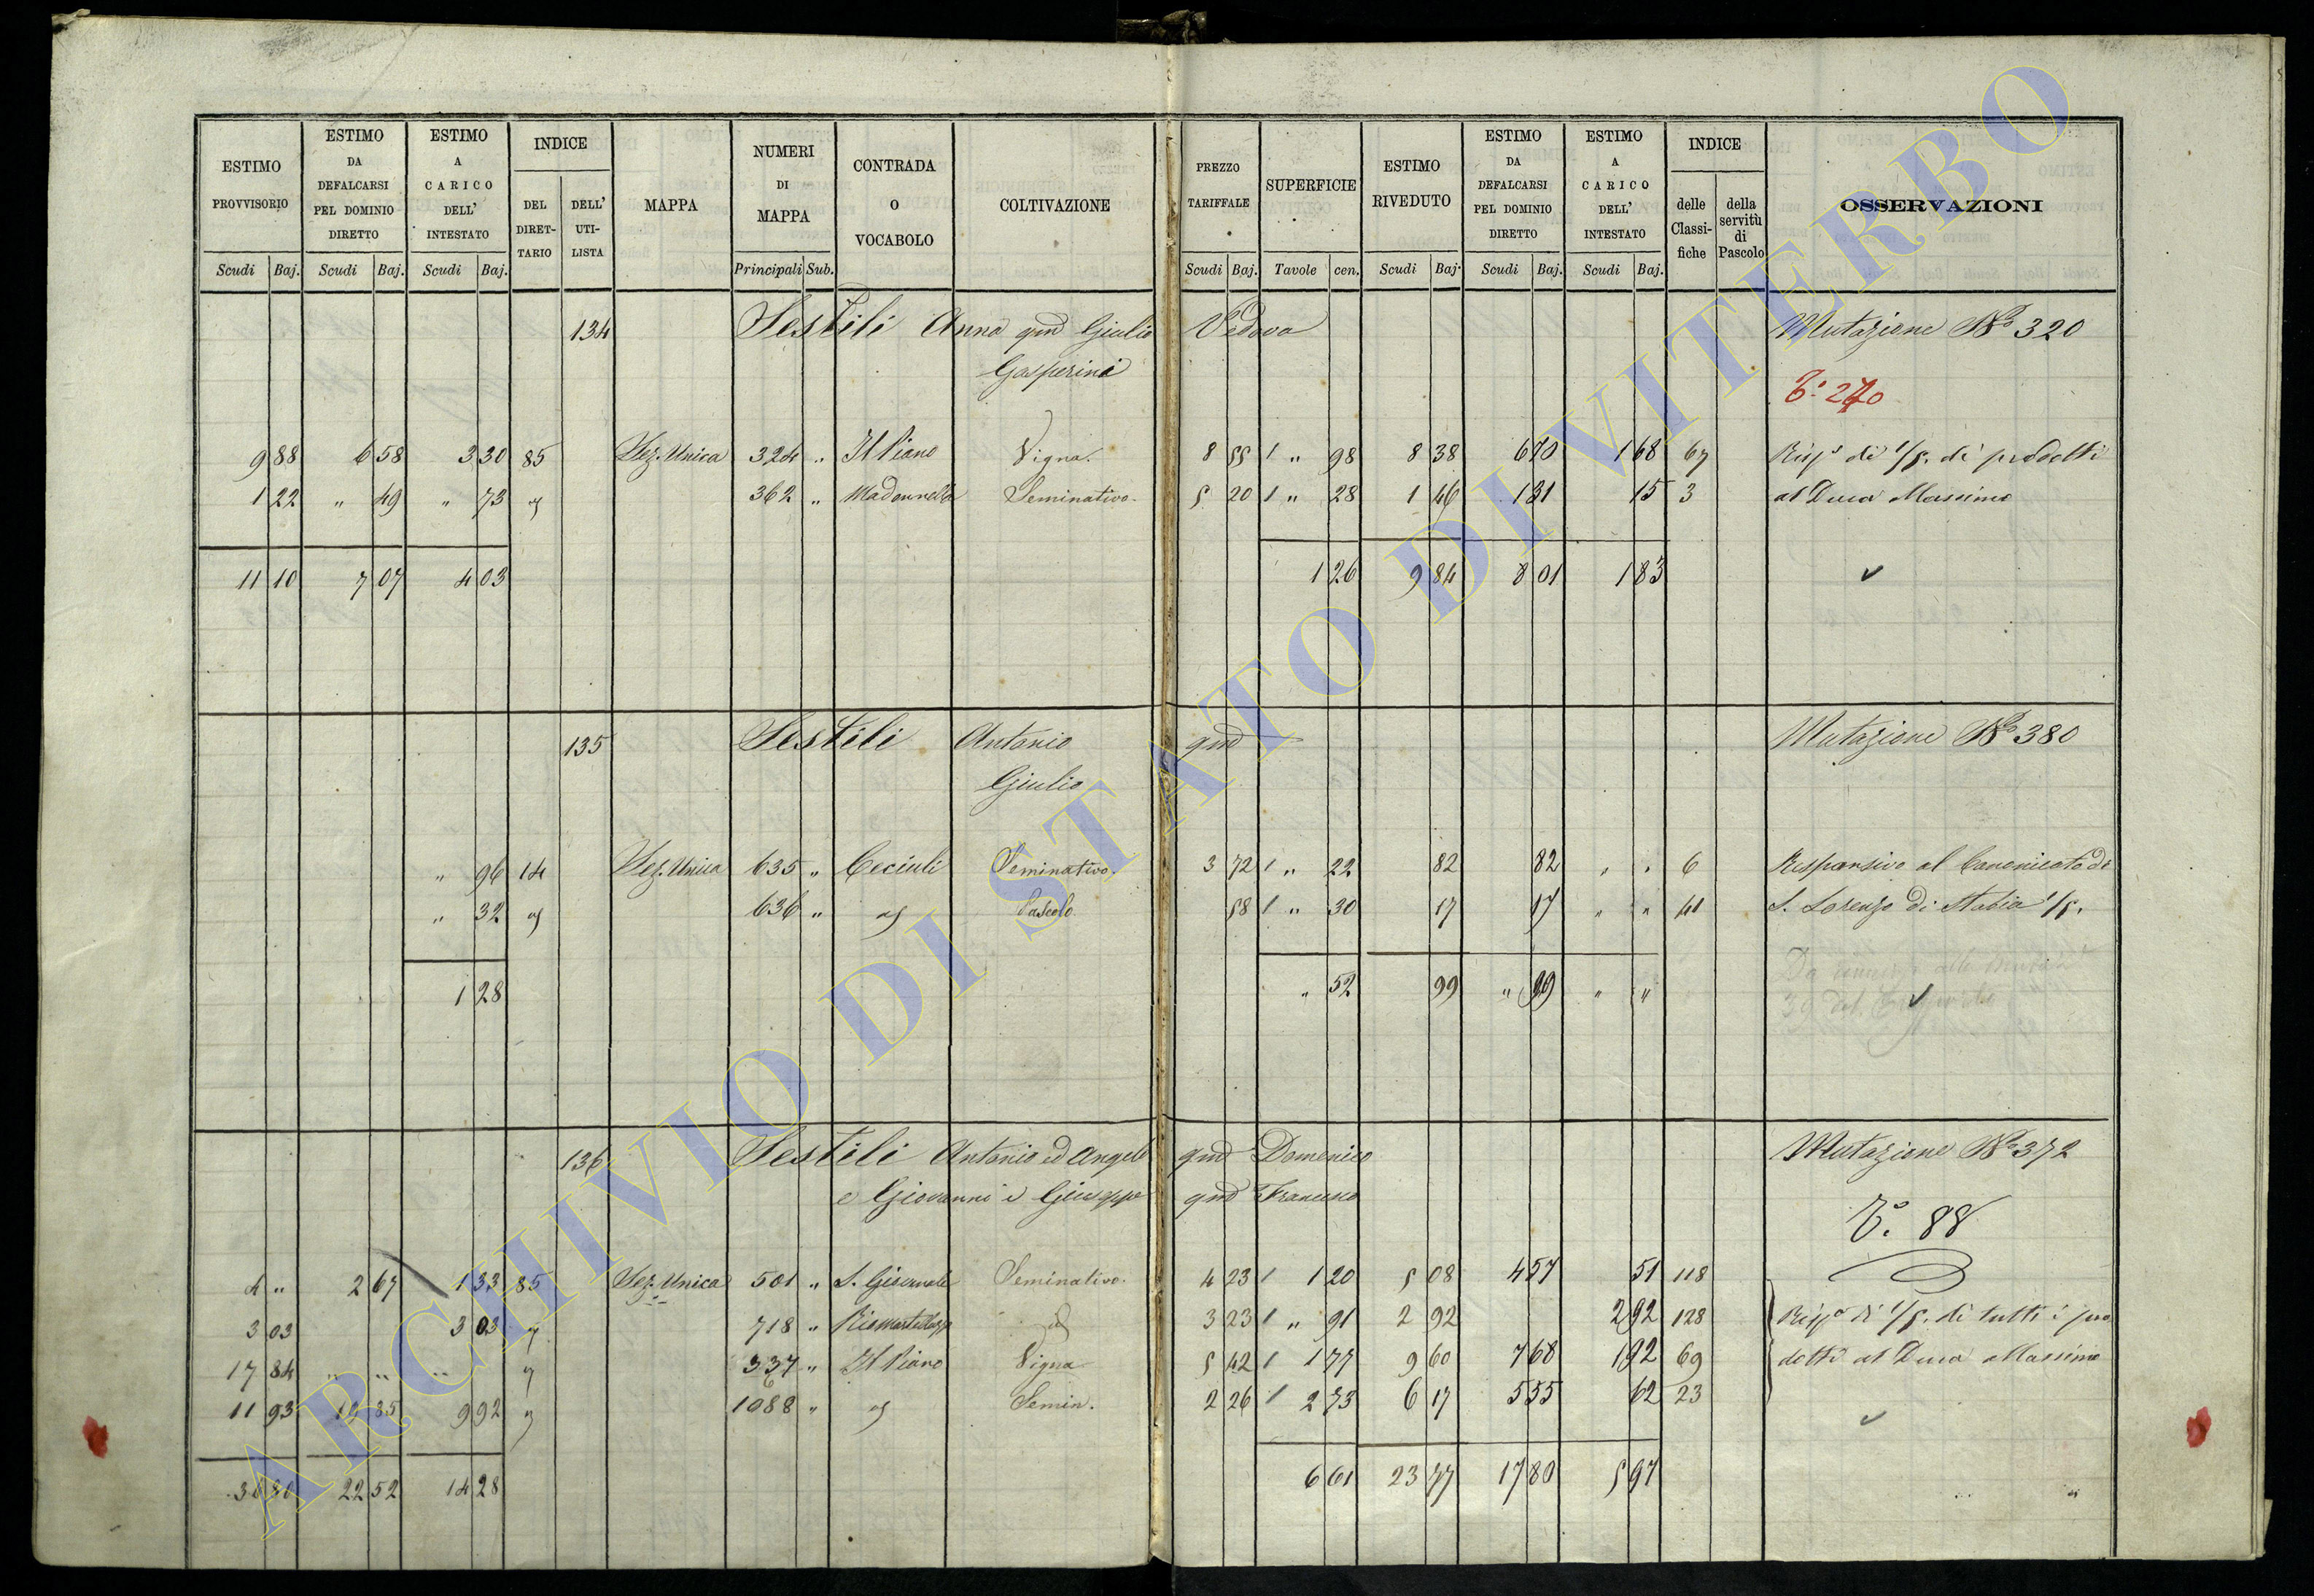 ESTIMO PROVVISORIO
ESTIMO DA DEFALCARSI PEL DOMINIO DIRETTO
ESTIMO A CARICO DELL' INTESTATO
INDICE
DEL DIRET-TARIO
DELL' UTI-LISTA
MAPPA
NUMERI DI MAPPA
CONTRADA O VOCABOLO
COLTIVAZIONE
PREZZO TARIFFALE
SUPERFICIE
ESTIMO RIVEDUTO
ESTIMO DA DEFALCARSI PEL DOMINIO DIRETTO
ESTIMO A CARICO DELL' INTESTATO
INDICE
delle Classi-fiche
della servitù di Pascolo
OSSERVAZIONI
Scudi Baj. Scudi Baj. Scudi Baj. Principali Sub. Scudi Baj. Tavole cen. Scudi Baj. Scudi Baj. Scudi Baj.
134 Sestili Anna qm̄ Giulio Vedova Mutazione No 320
Gasperini
To 270
9 88 6 58 3 30 85 Sez. Unica 324 " Il Piano Vigna. 8 55 1 " 98 8 38 6 70 1 68 67 Rispo di 1/5. di prodotti
1 22 " 49 " 73 " 362 " Madonnella Seminativo. 5 20 1 " 28 1 46 1 31 15 3 al Duca Massimo
11 10 7 07 4 03 1 26 9 84 8 01 1 83
135 Sestili Antonio qm̄ Mutazione No 380
Giulio
" 96 14 Sez. Unica 635 " Ceciuli Seminativo. 3 72 1 " 22 82 82 " " 6 Responsivo al Canonicato di
" 32 " 636 " " Pascolo 58 1 " 30 17 17 " " 41 S. Lorenzo di Stabia 1/5.
1 28 " 52 99 " 99 " "
136 Sestili Antonio ed Angelo qm̄ Domenico Mutazione No 372
e Giovanni e Giuseppe qm̄ Francesco
To. 88
4 " 2 67 1 33 85 Sez. Unica 501 " S. Giovenale Seminativo. 4 23 1 1 20 5 08 4 57 51 118
3 03 3 03 " 718 " 3 23 1 " 91 2 92 2 92 128 Rispo di 1/5. di tutti i pro
17 84 " " " " 337 " Il Piano Vigna 5 42 1 1 77 9 60 7 68 1 92 69 dotti al Duca Massimo
11 93 9 92 " 1088 " " Semin. 2 26 1 2 73 6 17 5 55 62 23
22 52 14 28 6 61 23 77 17 80 5 97
ARCHIVIO DI STATO DI VITERBO